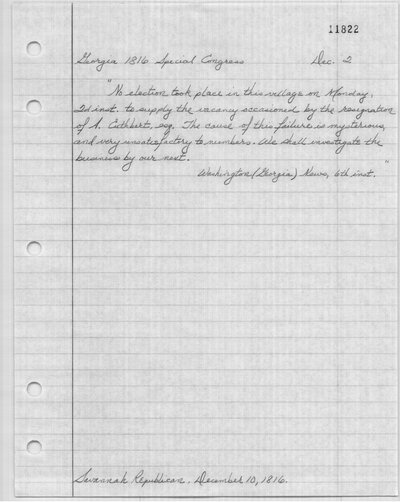 11822
Georgia 1816 Special Congress Dec. 2
"No election took place in this village on Monday,
2d inst. to supply the vacancy occasioned by the resignation
of A. Cuthbert, esq. The cause of this failure is mysterious,
and very unsatisfactory to numbers. We shall investigate the
business by our next."
Washington (Georgia) News, 6th inst.
Savannah Republican. December 10, 1816.